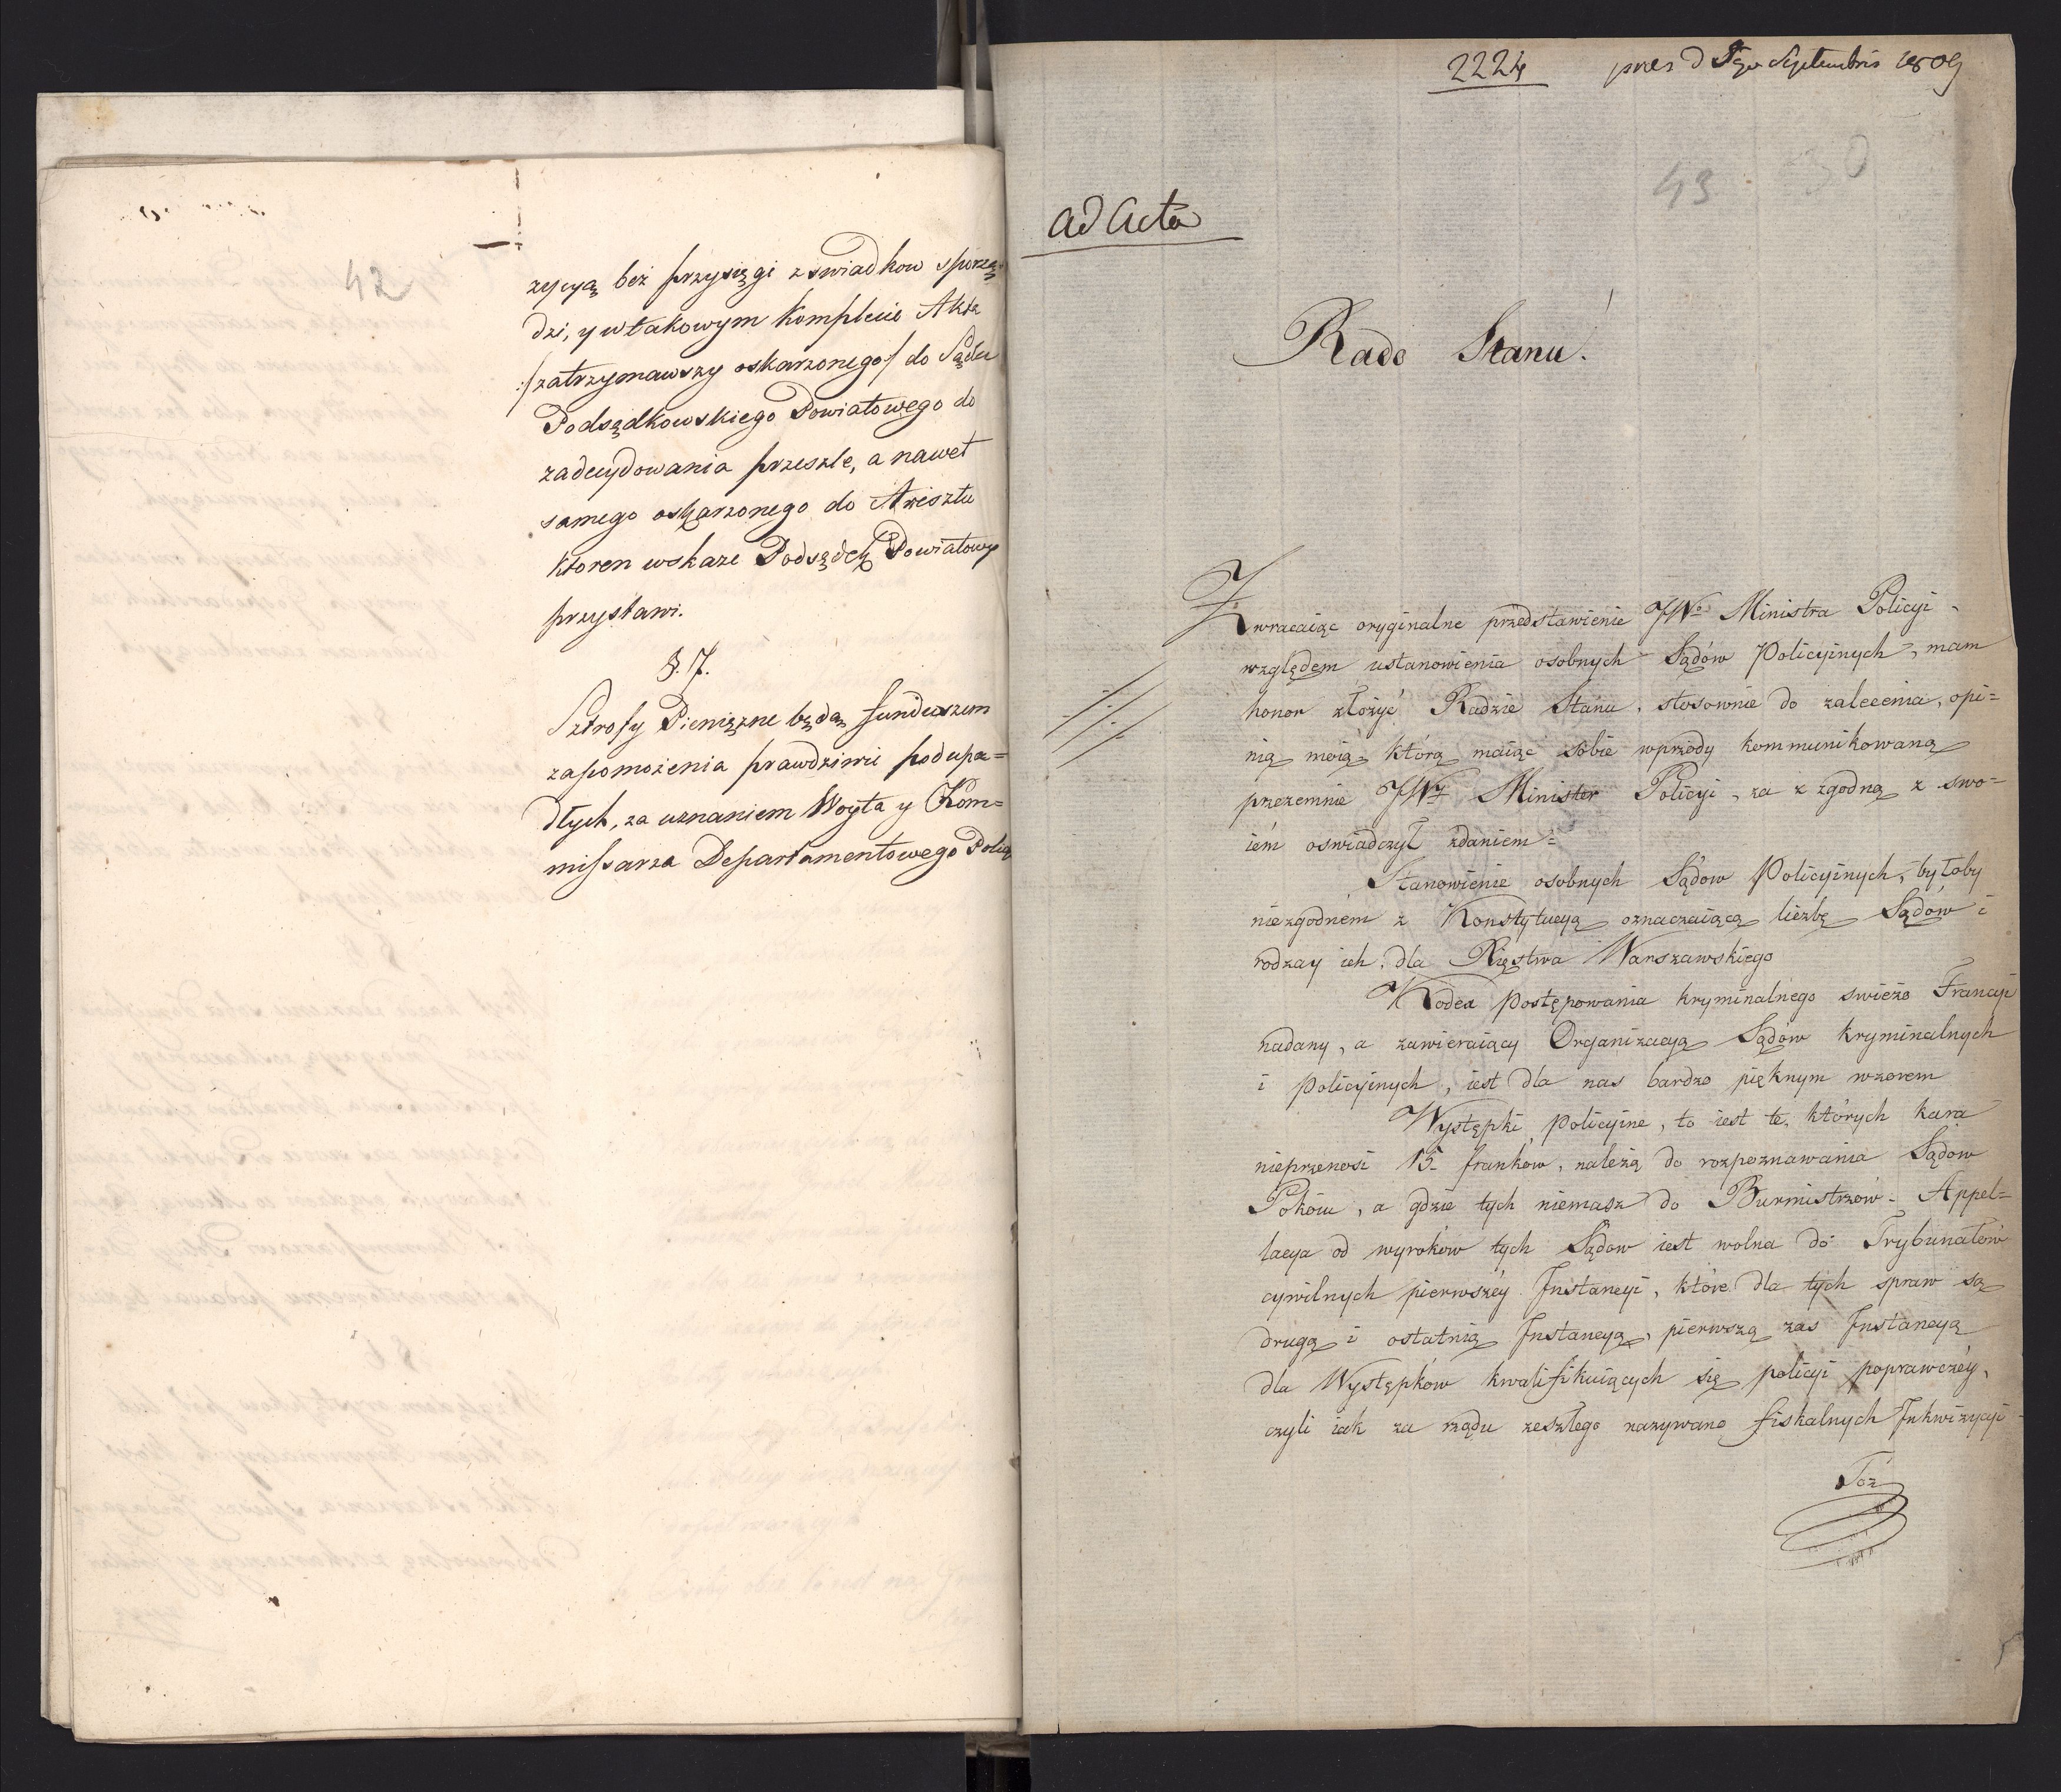 42
zycyą bez przysięgi z swiadkow sporzą-
dzi, y w takowym komplecie Akta
:/zatrzymawszy oskarzonego/ do Sądu
Podsędkowskiego Powiatowego do
zadecydowania przeszle, a nawet
samego oskarzonego do Aresztu
ktoren wskaze Podsędek Powiatowy
przystawi.
§. 7.
Sztrofy Pieniężne będą funduszem
zapomożenia prawdziwie podupa=
dłych, za uznaniem Woyta y Kom=
missarza Departamentowego Policyi
2224 pres d Septembris 1809
43 30
ad Acta
Rado Stanu!
Zwracaiąc oryginalne przedstawienie JWo Ministra Policyi
względem ustanowienia osobnych Sądów Policyinych, mam
honor złożyć Radzie Stanu, stosownie do zalecenia, opi=
nią moią, którą maiąc sobie wprzody kommunikowaną
przezemnie JWy Minister Policyi, za z zgodną z swo=
iém oswiadczył zdaniem=
Stanowienie osobnych Sądow Policyinych, byłoby
niezgodném z Konstytucyą oznaczaiącą liczbę Sądów i
rodzay ich, dla Xięstwa Warszawskiego
Kodex postępowania kryminalnego swieżo Francyi
nadany, a zawieraiący Organizacyą Sądów kryminalnych
i policyinych, iest dla nas bardzo pięknym wzorem
Występki policyine, to iest te, których kara
nieprzenosi 15 franków, należą do rozpoznawania Sądow
Pokoiu, a gdzie tych niemasz do Burmistrzów- Appel=
lacya od wyroków tych Sądow iest wolna do Trybunałów
cywilnych pierwszéy Instancyi, które dla tych spraw są
drugą i ostatnią Instancyą, pierwszą zas Instancyą
dla Występków kwalifikuiących się policyi poprawczéy,
czyli iak za rządu zeszłego nazywano fiskalnych Inkwizycyi
Toż